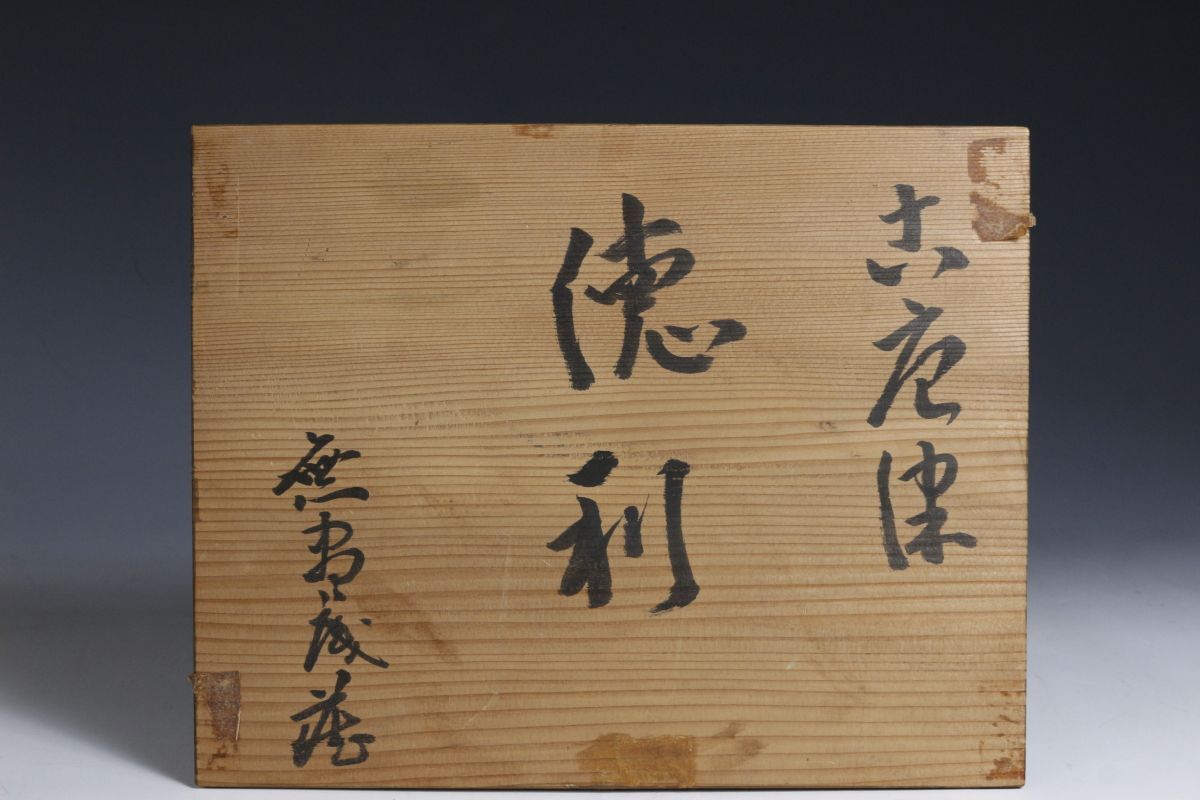 古唐津
徳利
無事庵蔵